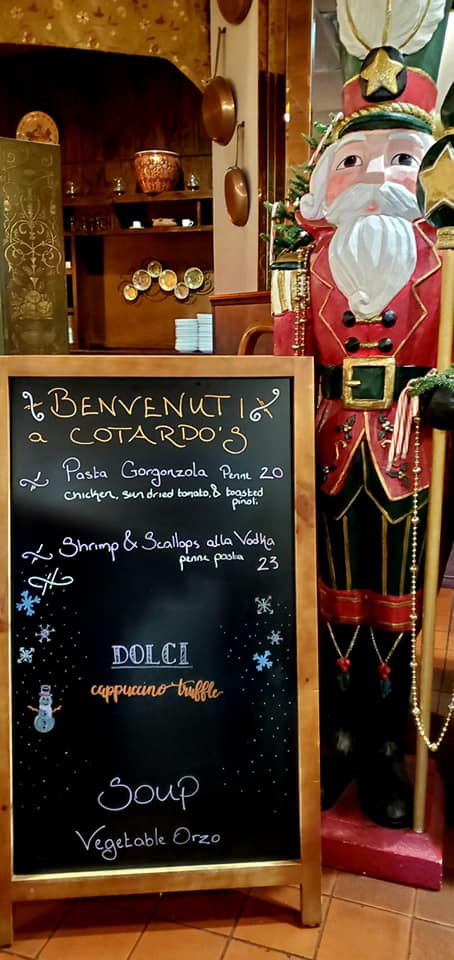 BENVENUTI
a COTARDO'S
Pasta Gorgonzola Penne 20
chicken, sundried tomato, & toasted
pinoli
Shrimp & Scallops alla Vodka
penne pasta 23
DOLCI
cappuccino truffle
Soup
Vegetable Orzo